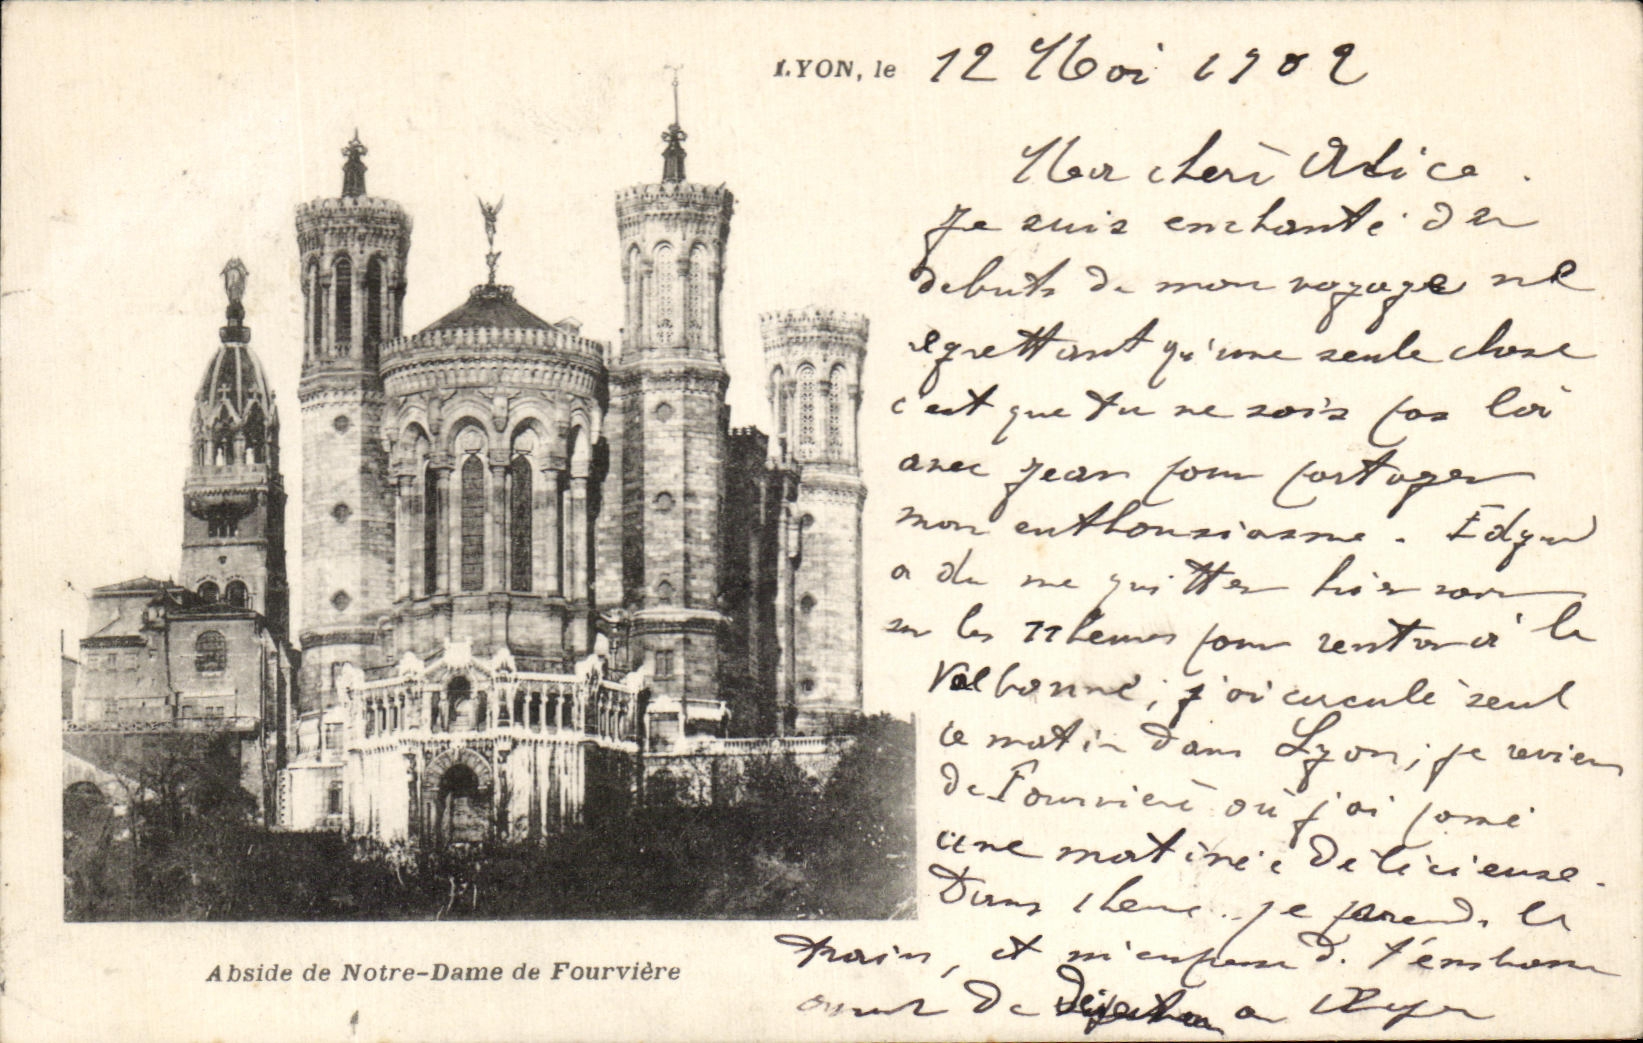 LYON, le 12 Mai 1902
Ma chère Alice.
Je suis enchanté des
débuts de mon voyage ne
regrettant qu'une seule chose
c'est que tu ne sois pas là
avec Jean pour partager
mon enthousiasme. Edgard
a du me quitter hier soir
sur les 11 heures pour rentrer à la
Valbonne; j'ai circulé seul
ce matin dans Lyon; je reviens
de Fourvière où j'ai passé
une matinée délicieuse.
Dans 1 heure je prends le
train, et m'empresse de t'embrasser
avant de déjeuner
Abside de Notre-Dame de Fourvière